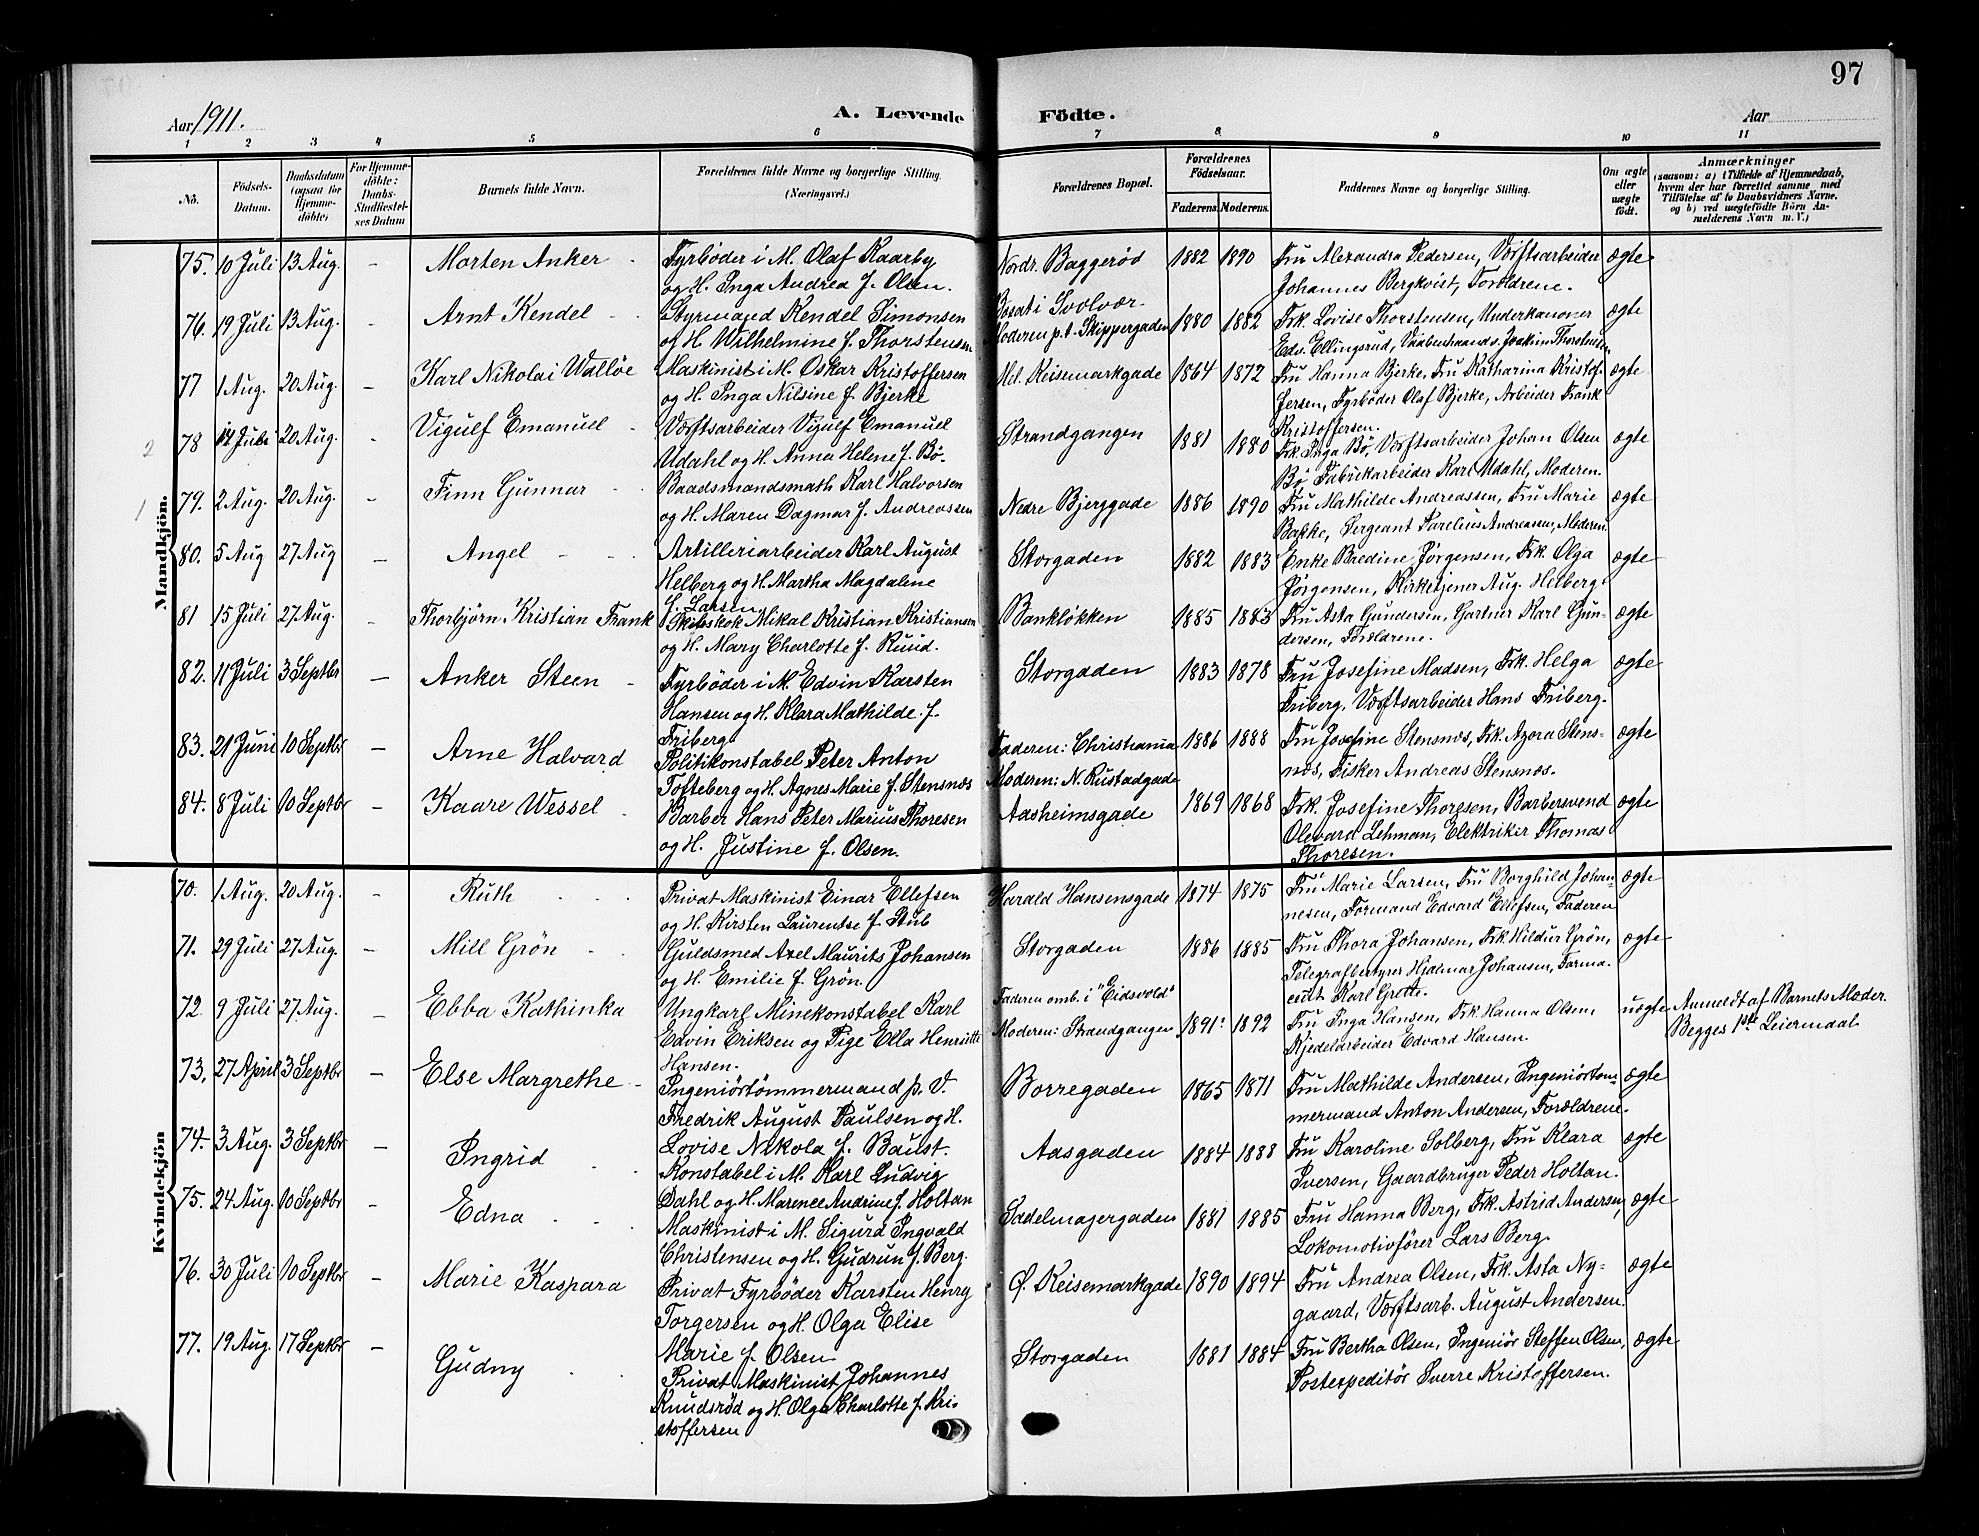 97
Aar 1911.
A. Levende Födte.
Aar
1 2 3 4 5 6 7 8 9 10 11
No.
Födsels-Datum.
Daabsdatum (ogsaa for Hjemmedöbte)
For Hjemmedöbte: Daabs-Stadfæstelses Datum
Barnets fulde Navn.
Forældrenes fulde Navne og borgerlige Stilling. (Næringsvei.)
Forældrenes Bopæl.
Forældrenes Födselsaar.
Faderens. Moderens.
Faddernes Navne og borgerlige Stilling.
Om ægte eller uægte født.
Anmærkninger (saasom: a) i Tilfælde af Hjemmedaab, hvem der har forrettet samme, med Tilföielse af to Daabsvidners Navne, og b) ved uægtefödte Börn Anmelderens Navn m. V.)
Mandkjön.
75. 10 Juli 13 Aug. – Morten Anker Fyrbøder i M. Olaf Kaarby
og H. Inga Andrea f. Olsen. Nordr. Baggerød 1882 1890 Fru Alexandra Pedersen, Værftsarbeider
Johannes Bergkvist, Forældrene. ægte
76. 19 Juli 13 Aug. – Arnt Kendel Styrmand Kendel Simonsen
og H. Wilhelmine f. Thorstensen Bosat i Svolvær.
Moderen p.t. Skippergaden 1880 1882 Frk. Lovise Thorstensen, Underkanoner
Edv. Ellingsrud, Vaabenhaandv. Joakim Thorstensen ægte
77 1 Aug. 20 Aug. – Karl Nikolai Walløe Maskinist i M. Oskar Kristoffersen
og H. Inga Nilsine f. Bjerke Mel. Keisemarkgade 1864 1872 Fru Hanna Bjerke, Fru Katharina Kristof-
fersen, Fyrbøder Olaf Bjerke, Arbeider Frank
Kristoffersen. ægte
2
78 12 Juli 20 Aug. – Vigulf Emanuel Værftsarbeider Vigulf Emanuel
Udahl og H. Anna Helene f. Bø. Strandgangen 1881 1880 Frk. Inga Bø, Værftsarbeider Johan Olsen
Bø, Fabrikarbeider Karl Udahl, Moderen. ægte
1
79. 2 Aug. 20 Aug. – Finn Gunnar Baadsmandsmath Karl Halvorsen
og H. Maren Dagmar f. Andreassen Nedre Bjerggade 1886 1890 Fru Mathilde Andreassen, Fru Marie
Bakke, Sergeant Parelius Andreasen, Moderen ægte
80. 5 Aug 27 Aug – Angel Artilleriarbeider Karl August
Helberg og H. Martha Magdalene
f. Larsen Storgaden 1882 1883 Enke Bredine Jørgensen, Frk. Olga
Jørgensen, Kirketjener Aug. Helberg. ægte
81 15 Juli 27 Aug. – Thorbjørn Kristian Frank Skibskok Mikal Kristian Kristiansen
og H. Mary Charlotte f. Ruud. Bankløkken 1885 1883 Fru Asta Gundersen, Gartner Karl Gun-
dersen, Forældrene. ægte
82. 11 Juli 3 Septbr – Anker Steen Fyrbøder i M. Edvin Karsten
Hansen og H. Klara Mathilde f.
Friberg Storgaden 1883 1878 Fru Josefine Madsen, Frk. Helga
Friberg, Værftsarbeider Hans Friberg. ægte
83. 21 Juni 10 Septbr – Arne Halvard Politikonstabel Peter Anton
Tofteberg og H. Agnes Marie f. Stensnæs Faderen: Christiania
Moderen: N. Rustadgade 1886 1888 Fru Josefine Stensnæs, Frk. Azora Stens-
næs, Fisker Andreas Stensnæs. ægte
84. 8 Juli 10 Septbr – Kaare Wessel Barber Hans Peter Marius Thoresen
og H. Justine f. Olsen. Aasheimsgade 1869 1868 Frk. Josefine Thoresen, Barbersvend
Olevard Lehman, Elektriker Thomas
Thoresen. ægte
Kvindekjön
70. 1 Aug. 20 Aug. – Ruth Privat Maskinist Einar Ellefsen
og H. Kirsten Laurentse f. Stub Harald Hansensgade 1874 1875 Fru Marie Larsen, Fru Borghild Johan-
nesen, Formand Edvard Ellefsen, Faderen ægte
71. 29 Juli 27 Aug. – Mill Grön Guldsmed Axel Maurits Johansen
og H. Emilie f. Grön. Storgaden 1886 1885 Fru Thora Johansen, Frk. Hildur Grön,
Telegrafbestyrer Hjalmar Johansen, Farma-
ceut Karl Grette. ægte
72 9 Juli 27 Aug. – Ebba Kathinka Ungkarl Minekonstabel Karl
Edvin Eriksen og Pige Ella Henriette
Hansen. Faderen omb. i "Eidsvold"
Moderen: Strandgangen 1891 1892 Fru Inga Hansen, Frk. Hanna Olsen,
Kjedelarbeider Edvard Hansen. uægte Anmeldt af Barnets Moder.
Begges 1ste Leiermaal.
73. 27 April 3 Septbr – Else Margrethe Ingeniörtömmermand p. V.
Fredrik August Paulsen og H.
Lovise Nikola f. Baust. Borregaden 1865 1871 Fru Mathilde Andersen, Ingeniörtöm-
mermand Anton Andersen, Forældrene. ægte
74. 3 Aug. 3 Septbr – Ingrid Konstabel i M. Karl Ludvig
Dahl og H. Marence Andrine f. Holtan Aasgaden 1884 1888 Fru Karoline Solberg, Fru Klara
Iversen, Gaardbruger Peder Holtan. ægte
75. 24 Aug. 10 Septbr – Edna Maskinist i M. Sigurd Ingvald
Christensen og H. Gudrun f. Berg. Sadelmagergaden 1881 1885 Fru Hanna Berg, Frk. Astrid Andersen,
Lokomotivfører Lars Berg. ægte
76. 30 Juli 10 Septbr – Marie Kaspara Privat Fyrbøder Karsten Henry
Torgersen og H. Olga Elise
Marie f. Olsen. Ø. Keisemarkgade 1890 1894 Fru Andrea Olsen, Frk. Asta Ny-
gaard, Værftsarb. August Andersen. ægte
77. 19 Aug. 17 Septbr – Gudny Privat Maskinist Johannes
Knudsrød og H. Olga Charlotte f. Kri-
stoffersen Storgaden 1881 1884 Fru Bertha Olsen, Ingeniör Steffen Olsen,
Postexpeditör Sverre Kristoffersen. ægte